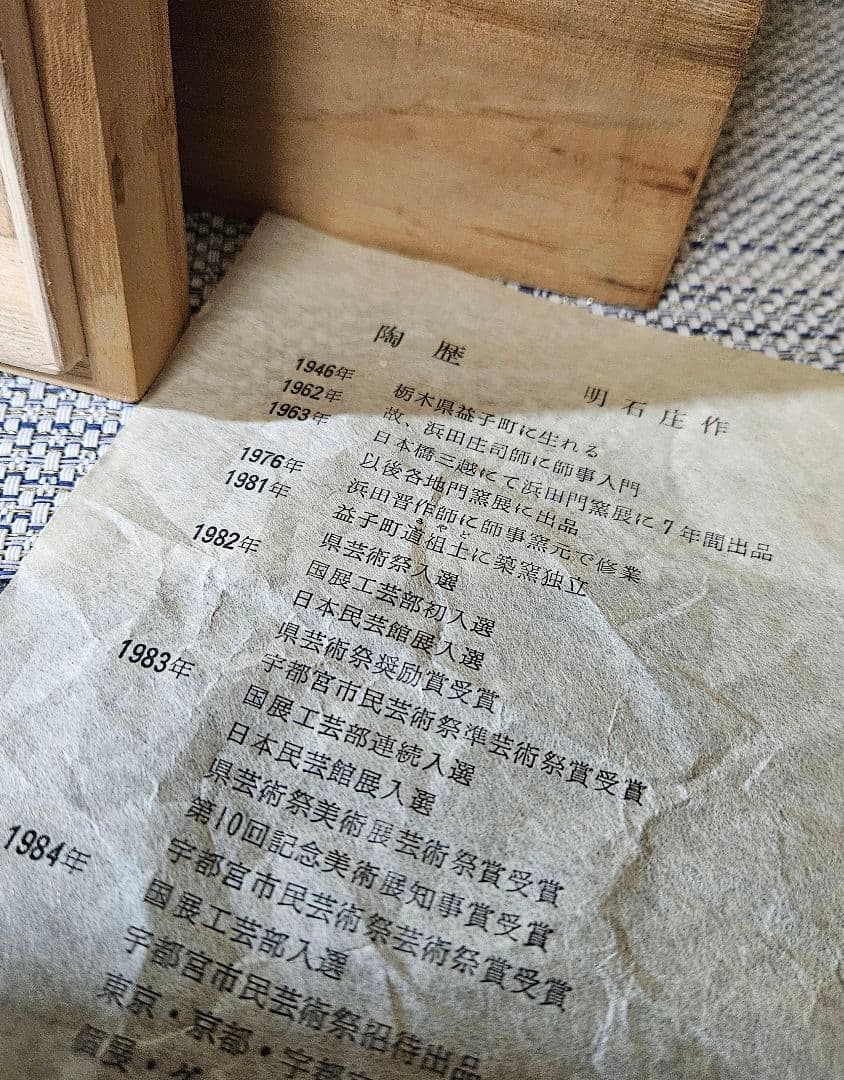 陶歴
明石庄作
1946年 栃木県益子町に生れる
1962年 故、浜田庄司師に師事入門
1963年 日本橋三越にて浜田門窯展に7年間出品
以後各地門窯展に出品
1976年 浜田晋作師に師事窯元で修業
1981年 益子町道祖土に築窯独立
さやど
県芸術祭入選
1982年 国展工芸部初入選
日本民芸館展入選
県芸術祭奨励賞受賞
宇都宮市民芸術祭準芸術祭賞受賞
1983年 国展工芸部連続入選
日本民芸館展入選
県芸術祭美術展芸術祭賞受賞
第10回記念美術展知事賞受賞
宇都宮市民芸術祭芸術祭賞受賞
1984年 国展工芸部入選
宇都宮市民芸術祭招待出品
東京・京都・宇都宮
個展・グ